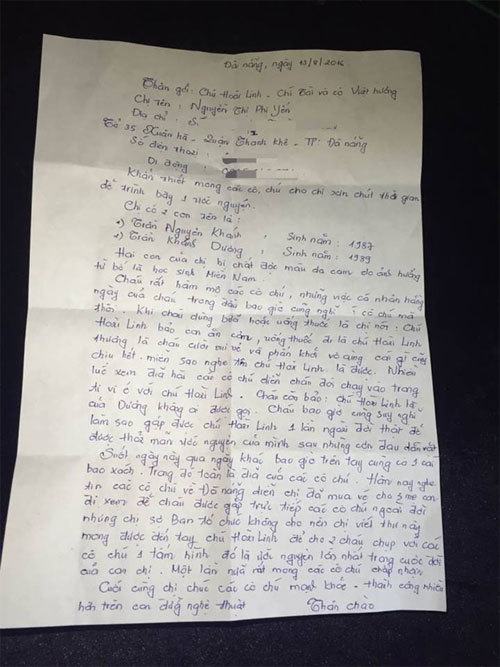 Đà nẵng, ngày 13/8/2016
Thân gởi: Chú Hoài Linh - Chú Tài và cô Việt Hương
Chị tên: Nguyễn Thị Phi Yến
Địa chỉ: S
Tổ 35 Xuân hà - Quận Thanh Khê - TP: Đà nẵng
Số điện thoại:
Di động:
Khẩn thiết mong các cô, chú cho chị xin chút thời gian
để trình bày 1 ước nguyện.
Chị có 2 con tên là:
1) Trần Nguyên Khánh, Sinh năm: 1987
2) Trần Khánh Dương, Sinh năm: 1989
Hai con của chị bị chất độc màu da cam do ảnh hưởng
từ bố là học sinh Miền Nam.
Cháu rất hâm mộ các cô chú, những việc cá nhân hằng
ngày của cháu trong đầu bao giờ cũng nghĩ có chú mà
thôi. Khi cháu dùng bữa hoặc uống thuốc là chị nói: Chú
Hoài Linh bảo con ăn cơm, uống thuốc đi là chú Hoài Linh
thương là cháu cười vui vẻ và phấn khởi vô cùng cái gì cũng
chịu hết. miễn sao nghe tên chú Hoài Linh là được. Nhiều
lúc xem đĩa hài các cô chú diễn cháu đòi chạy vào trong
ti vi ở với chú Hoài Linh. Cháu còn bảo: chú Hoài Linh là
của Dương không ai được gọi. Cháu bao giờ cũng suy nghĩ
làm sao gặp được chú Hoài Linh 1 lần ngoài đời thật để
được thỏa mãn ước nguyện của mình sau những cơn đau đớn
Suốt ngày này qua ngày khác bao giờ trên tay cũng có 1 cái
bao xách. Trong đó toàn là đĩa của các cô chú. Hôm nay nghe
tin các cô chú về Đà nẵng diễn chị đã mua vé cho 3 mẹ con
đi xem để cháu được gặp trực tiếp các cô chú ngoài đời
nhưng chị sợ Ban tổ chức không cho nên chị viết thư này
mong được đến tay chú Hoài Linh để cho 2 cháu chụp với các
cô chú 1 tấm hình đó là ước nguyện lớn nhất trong cuộc đời
của con chị. Một lần nữa rất mong các cô chú chấp nhận.
Cuối cùng chị chúc các cô chú mạnh khỏe - thành công nhiều
hơn trên con đường nghệ thuật
Thân chào